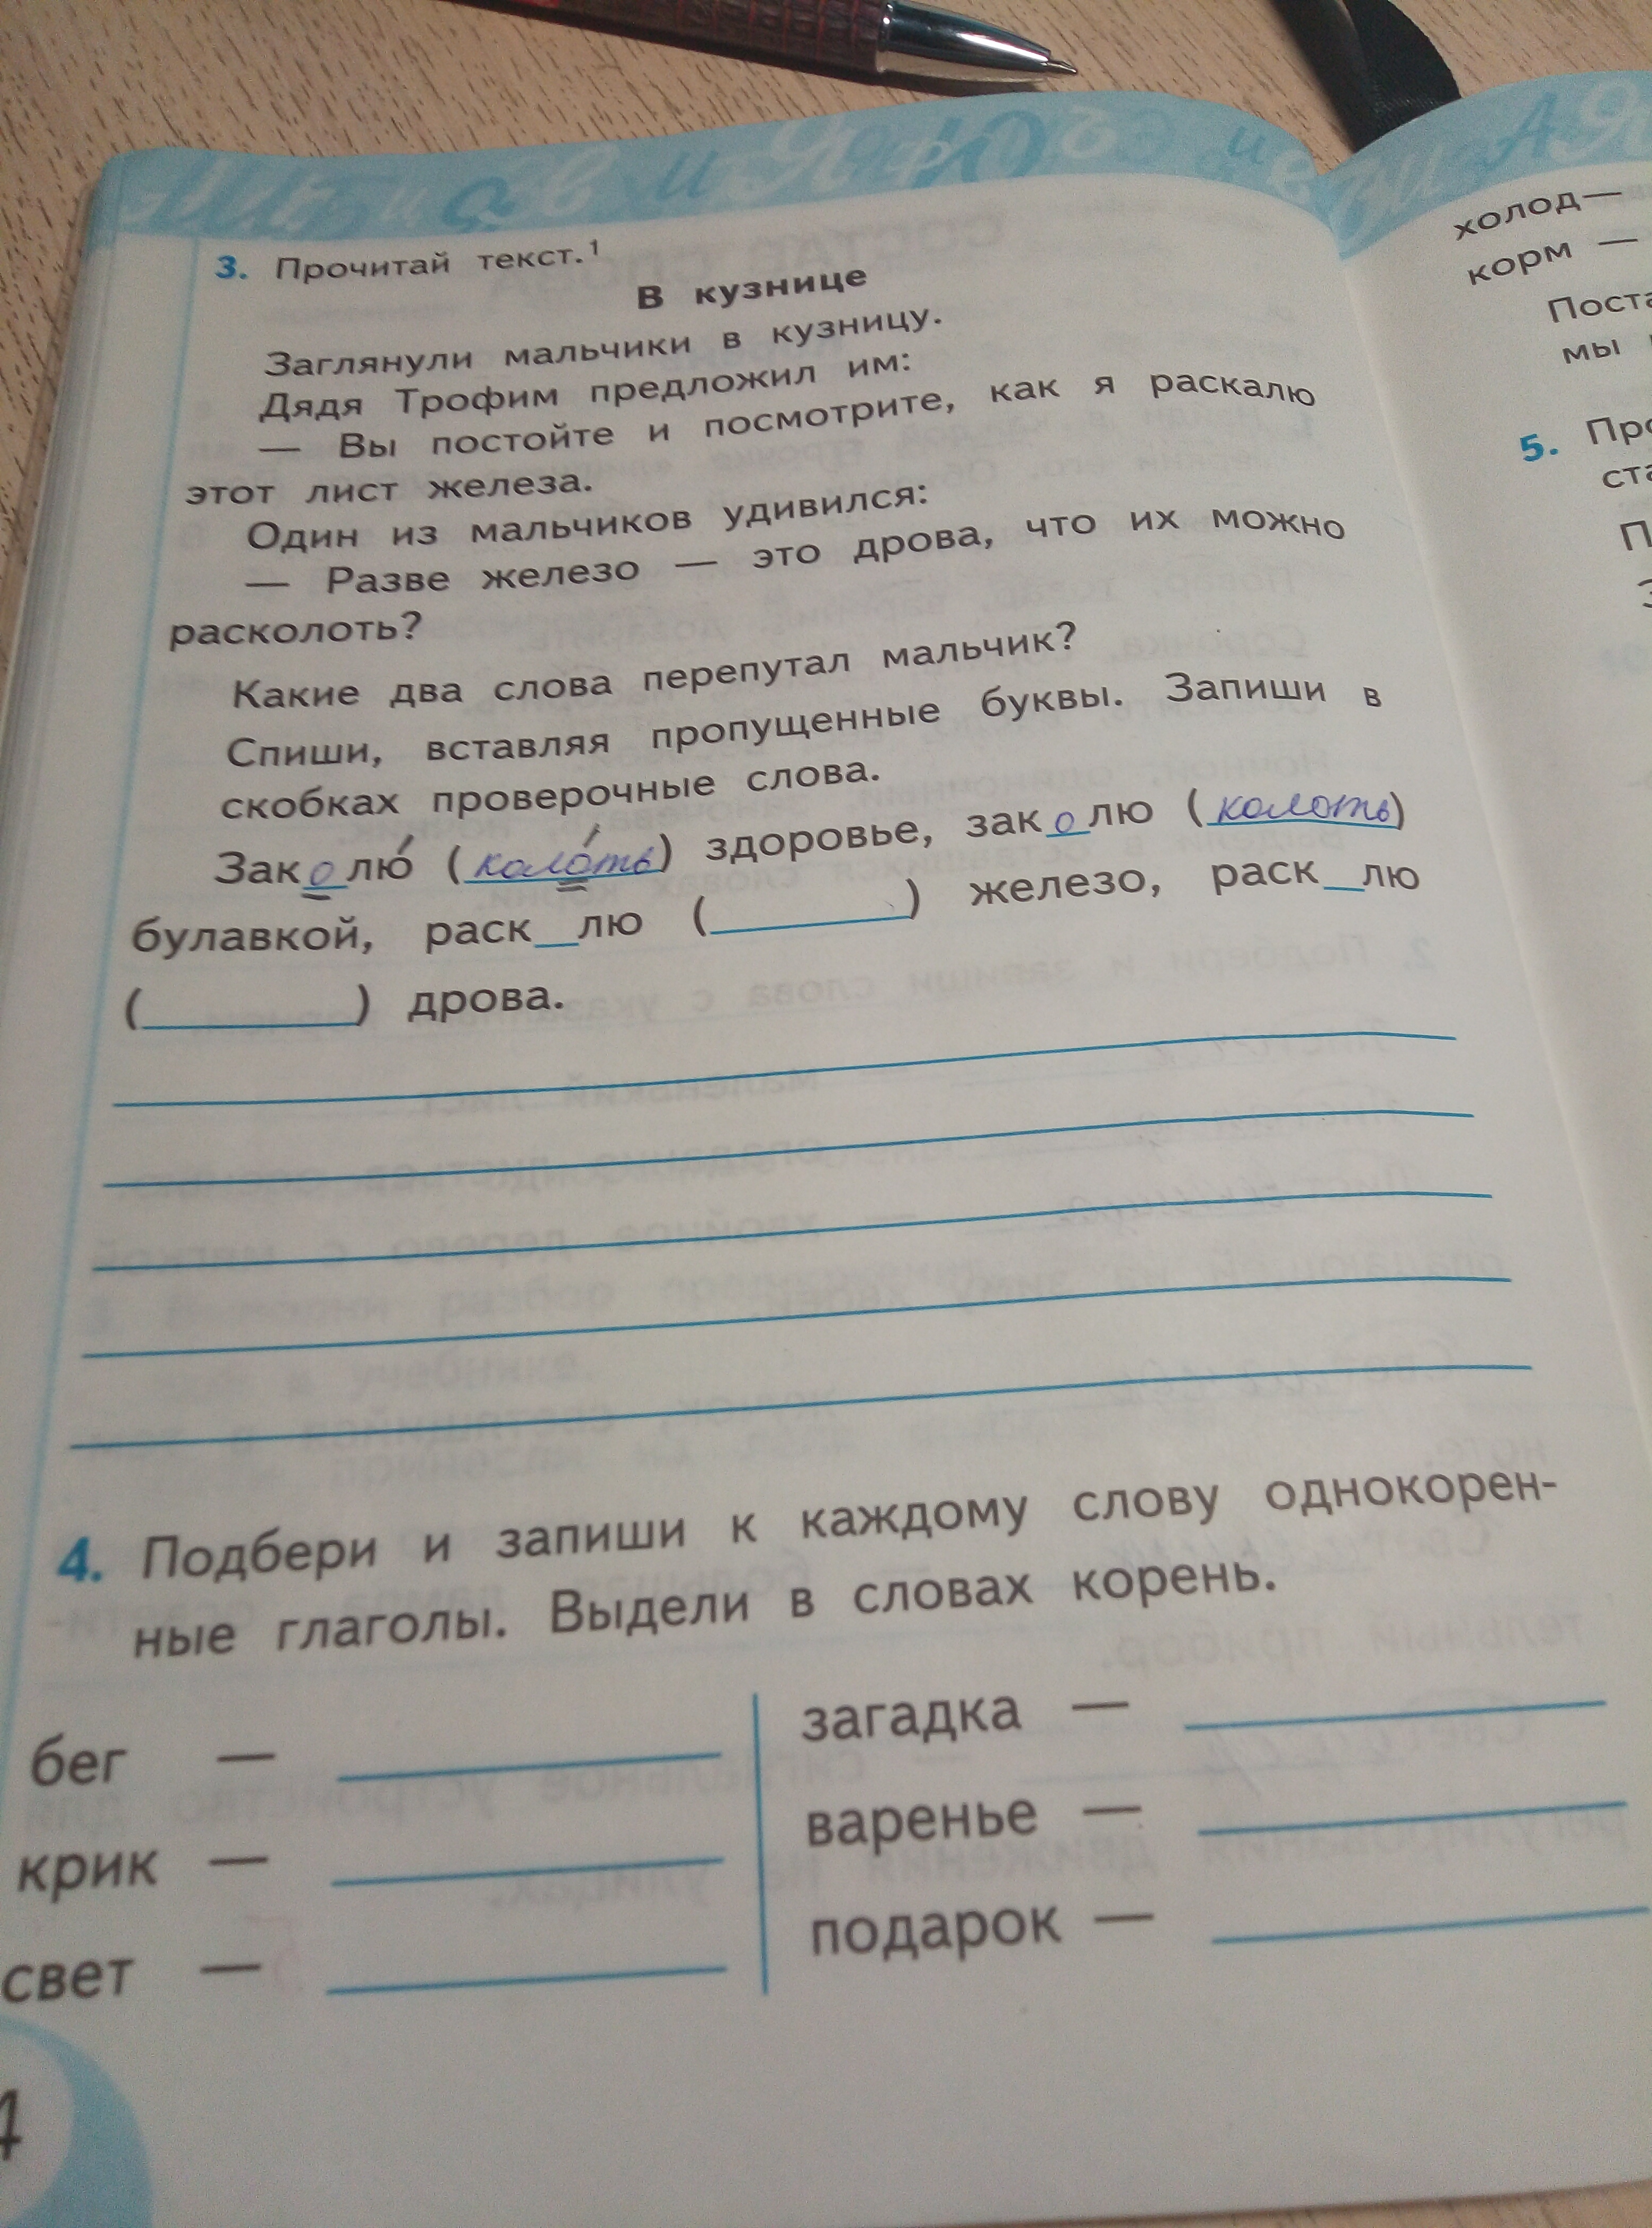 3. Прочитай текст.¹
В кузнице
Заглянули мальчики в кузницу.
Дядя Трофим предложил им:
— Вы постойте и посмотрите, как я раскалю
этот лист железа.
Один из мальчиков удивился:
— Разве железо — это дрова, что их можно
расколоть?
Какие два слова перепутал мальчик?
Спиши, вставляя пропущенные буквы. Запиши в
скобках проверочные слова.
Зак о лю́ (коло́ть) здоровье, зак о лю (колоть)
булавкой, раск_лю (________) железо, раск_лю
(________) дрова.
4. Подбери и запиши к каждому слову однокорен-
ные глаголы. Выдели в словах корень.
бег —
крик —
свет —
загадка —
варенье —
подарок —
4
холод—
корм —
Поста
мы
5. Про
ста
П
З